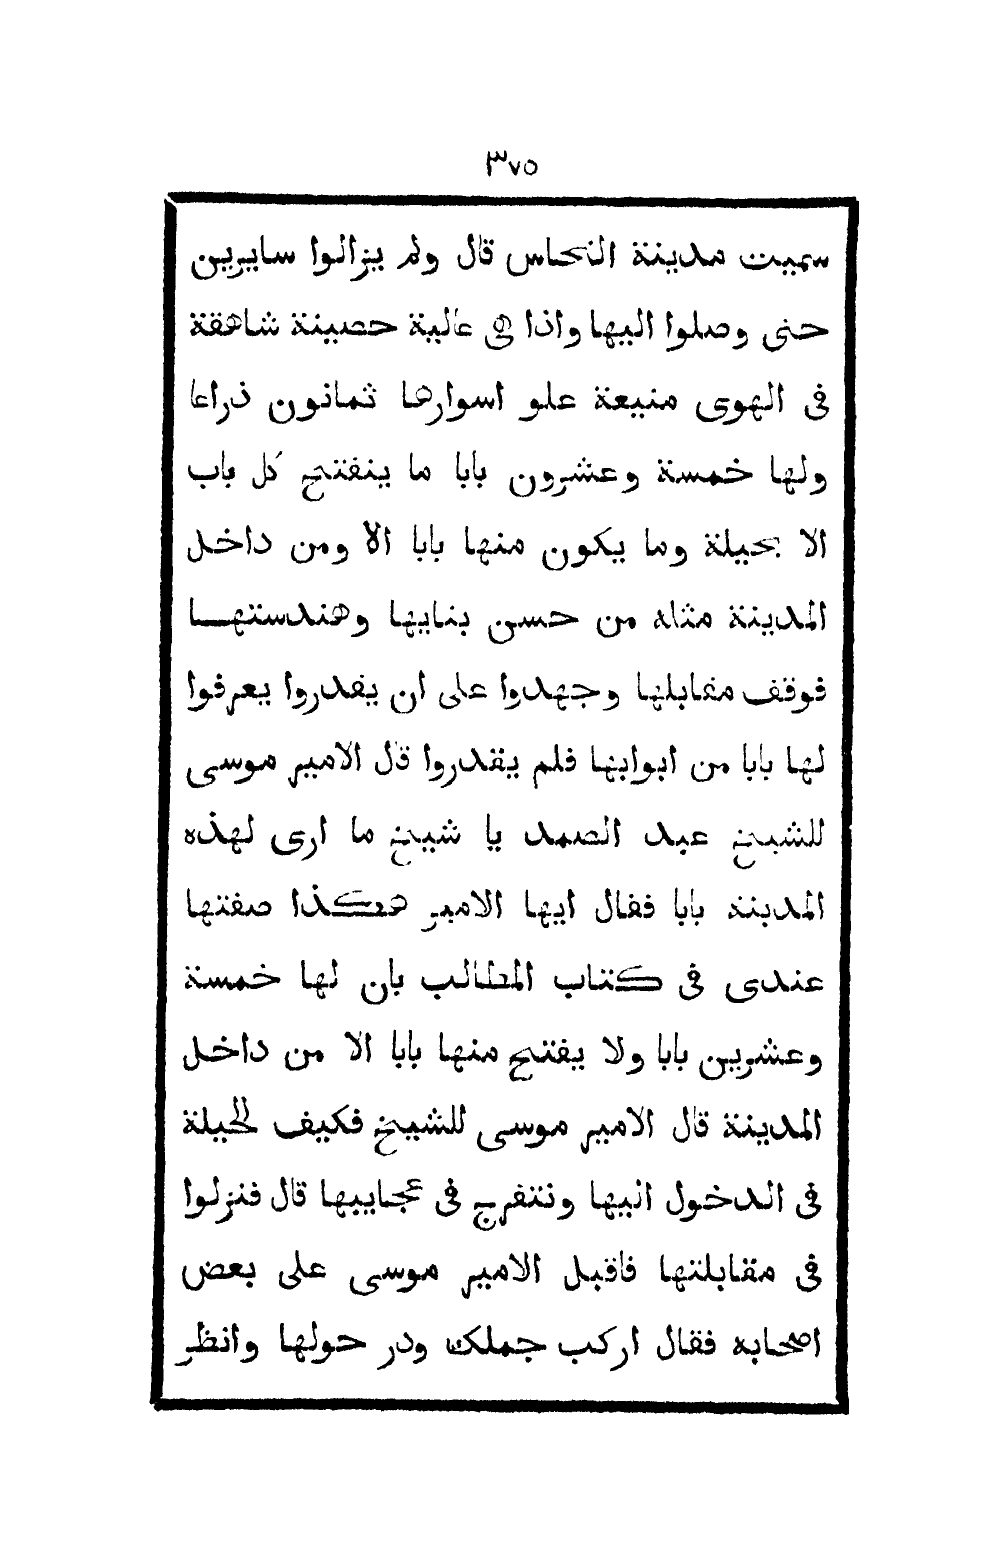 ٣٧٥
سميت مدينة النحاس قال ولم يزالوا سايرين
حتى وصلوا اليها واذا هى عالية حصينة شاهقة
فى الهوى منيعة علو اسوارها ثمانون ذراعا
ولها خمسة وعشرون بابا ما ينفتح كل باب
الا بحيلة وما يكون منها بابا الا ومن داخل
المدينة مثله من حسن بنايها وهندستهـــا
فوقف مقابلها وجهدوا على ان يقدروا يعرفوا
لها بابا من ابوابها فلم يقدروا قال الامير موسى
للشيخ عبد الصمد يا شيخ ما ارى لهذه
المدينة بابا فقال ايها الامير هكذا صفتها
عندى فى كتاب المطالب بان لها خمسة
وعشرين بابا ولا يفتح منها بابا الا من داخل
المدينة قال الامير موسى للشيخ فكيف للحيلة
فى الدخول اليها ونتفرج فى عجايبها قال فنزلوا
فى مقابلتها فاقبل الامير موسى على بعض
اصحابه فقال اركب جملك ودر حولها وانظر